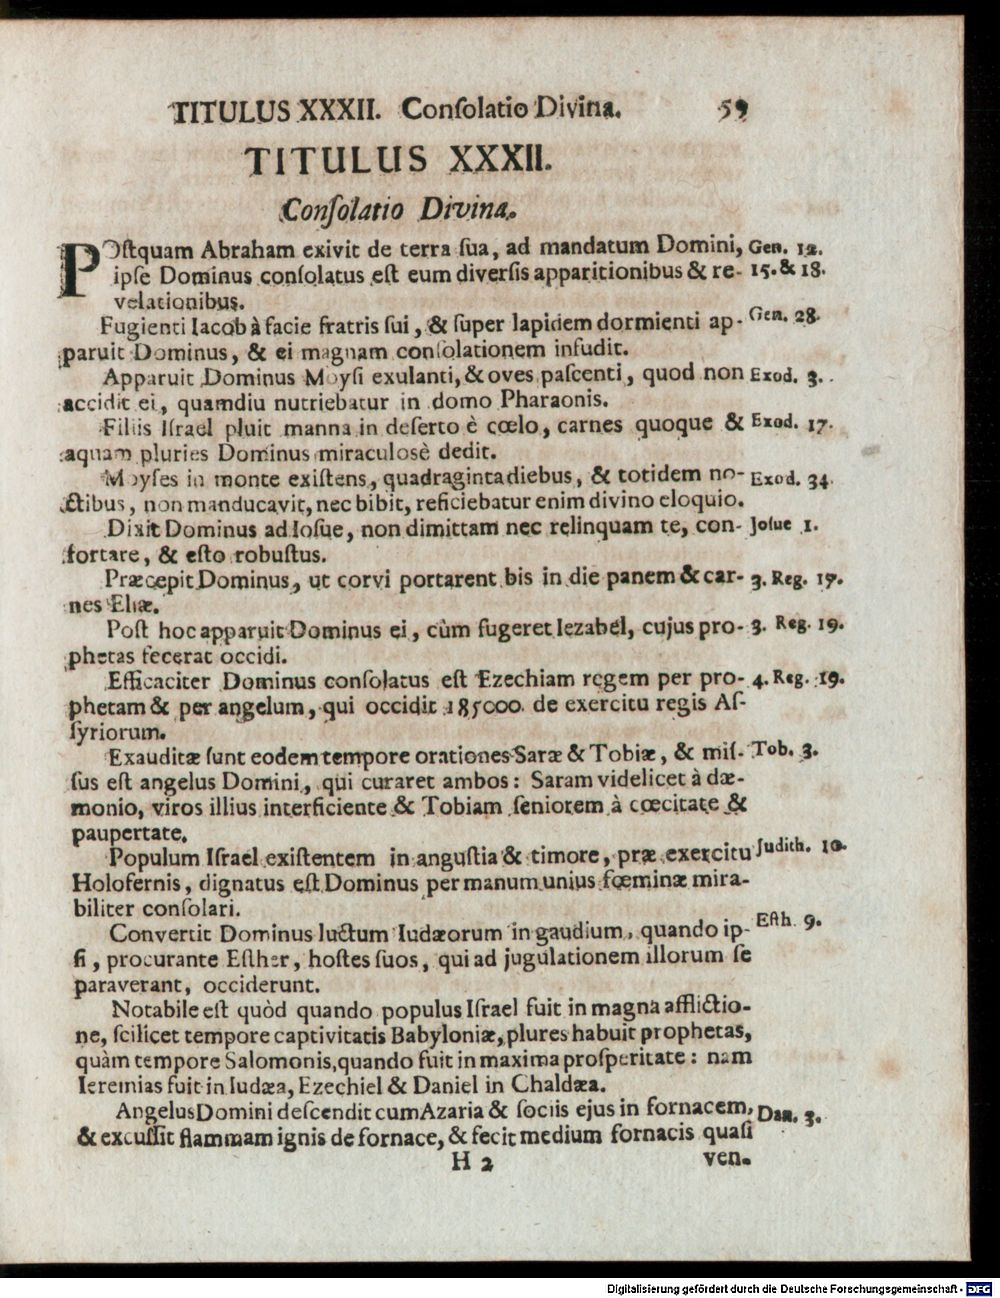 TITULUS XXXII. Conſolatio Divina. 59
TITULUS XXXII.
Conſolatio Divina.
POſtquam Abraham exivit de terra ſua, ad mandatum Domini, Gen. 12.
ipſe Dominus conſolatus eſt eum diverſis apparitionibus & re- 15. & 18.
velationibus.
Fugienti Iacob à facie fratris ſui, & ſuper lapidem dormienti ap- Gen. 28.
paruit Dominus, & ei magnam conſolationem infudit.
Apparuit Dominus Moyſi exulanti, & oves paſcenti, quod non Exod. 3.
accidit ei, quamdiu nutriebatur in domo Pharaonis.
Filiis Iſrael pluit manna in deſerto è cœlo, carnes quoque & Exod. 17.
aquam pluries Dominus miraculosè dedit.
Moyſes in monte exiſtens, quadraginta diebus, & totidem no- Exod. 34.
ctibus, non manducavit, nec bibit, reficiebatur enim divino eloquio.
Dixit Dominus ad Ioſue, non dimittam nec relinquam te, con- Joſue 1.
fortare, & eſto robuſtus.
Præcepit Dominus, ut corvi portarent bis in die panem & car- 3. Reg. 17.
nes Eliæ.
Poſt hoc apparuit Dominus ei, cùm fugeret Iezabel, cujus pro- 3. Reg. 19.
phetas fecerat occidi.
Efficaciter Dominus conſolatus eſt Ezechiam regem per pro- 4. Reg. 19.
phetam & per angelum, qui occidit 185000. de exercitu regis Aſ-
ſyriorum.
Exauditæ ſunt eodem tempore orationes Saræ & Tobiæ, & miſ- Tob. 3.
ſus eſt angelus Domini, qui curaret ambos: Saram videlicet à dæ-
monio, viros illius interficiente & Tobiam ſeniorem à cœcitate &
paupertate.
Populum Iſrael exiſtentem in anguſtia & timore, præ exercitu Judith. 10.
Holofernis, dignatus eſt Dominus per manum unius fœminæ mira-
biliter conſolari.
Convertit Dominus luctum Iudæorum in gaudium, quando ip- Eſth. 9.
ſi, procurante Eſther, hoſtes ſuos, qui ad jugulationem illorum ſe
paraverant, occiderunt.
Notabile eſt quòd quando populus Iſrael fuit in magna afflictio-
ne, ſcilicet tempore captivitatis Babyloniæ, plures habuit prophetas,
quàm tempore Salomonis, quando fuit in maxima proſperitate: nam
Ieremias fuit in Iudæa, Ezechiel & Daniel in Chaldæa.
Angelus Domini deſcendit cum Azaria & ſociis ejus in fornacem, Dan. 3.
& excuſſit flammam ignis de fornace, & fecit medium fornacis quaſi
H 2 ven-
Digitalisierung gefördert durch die Deutsche Forschungsgemeinschaft - DFG